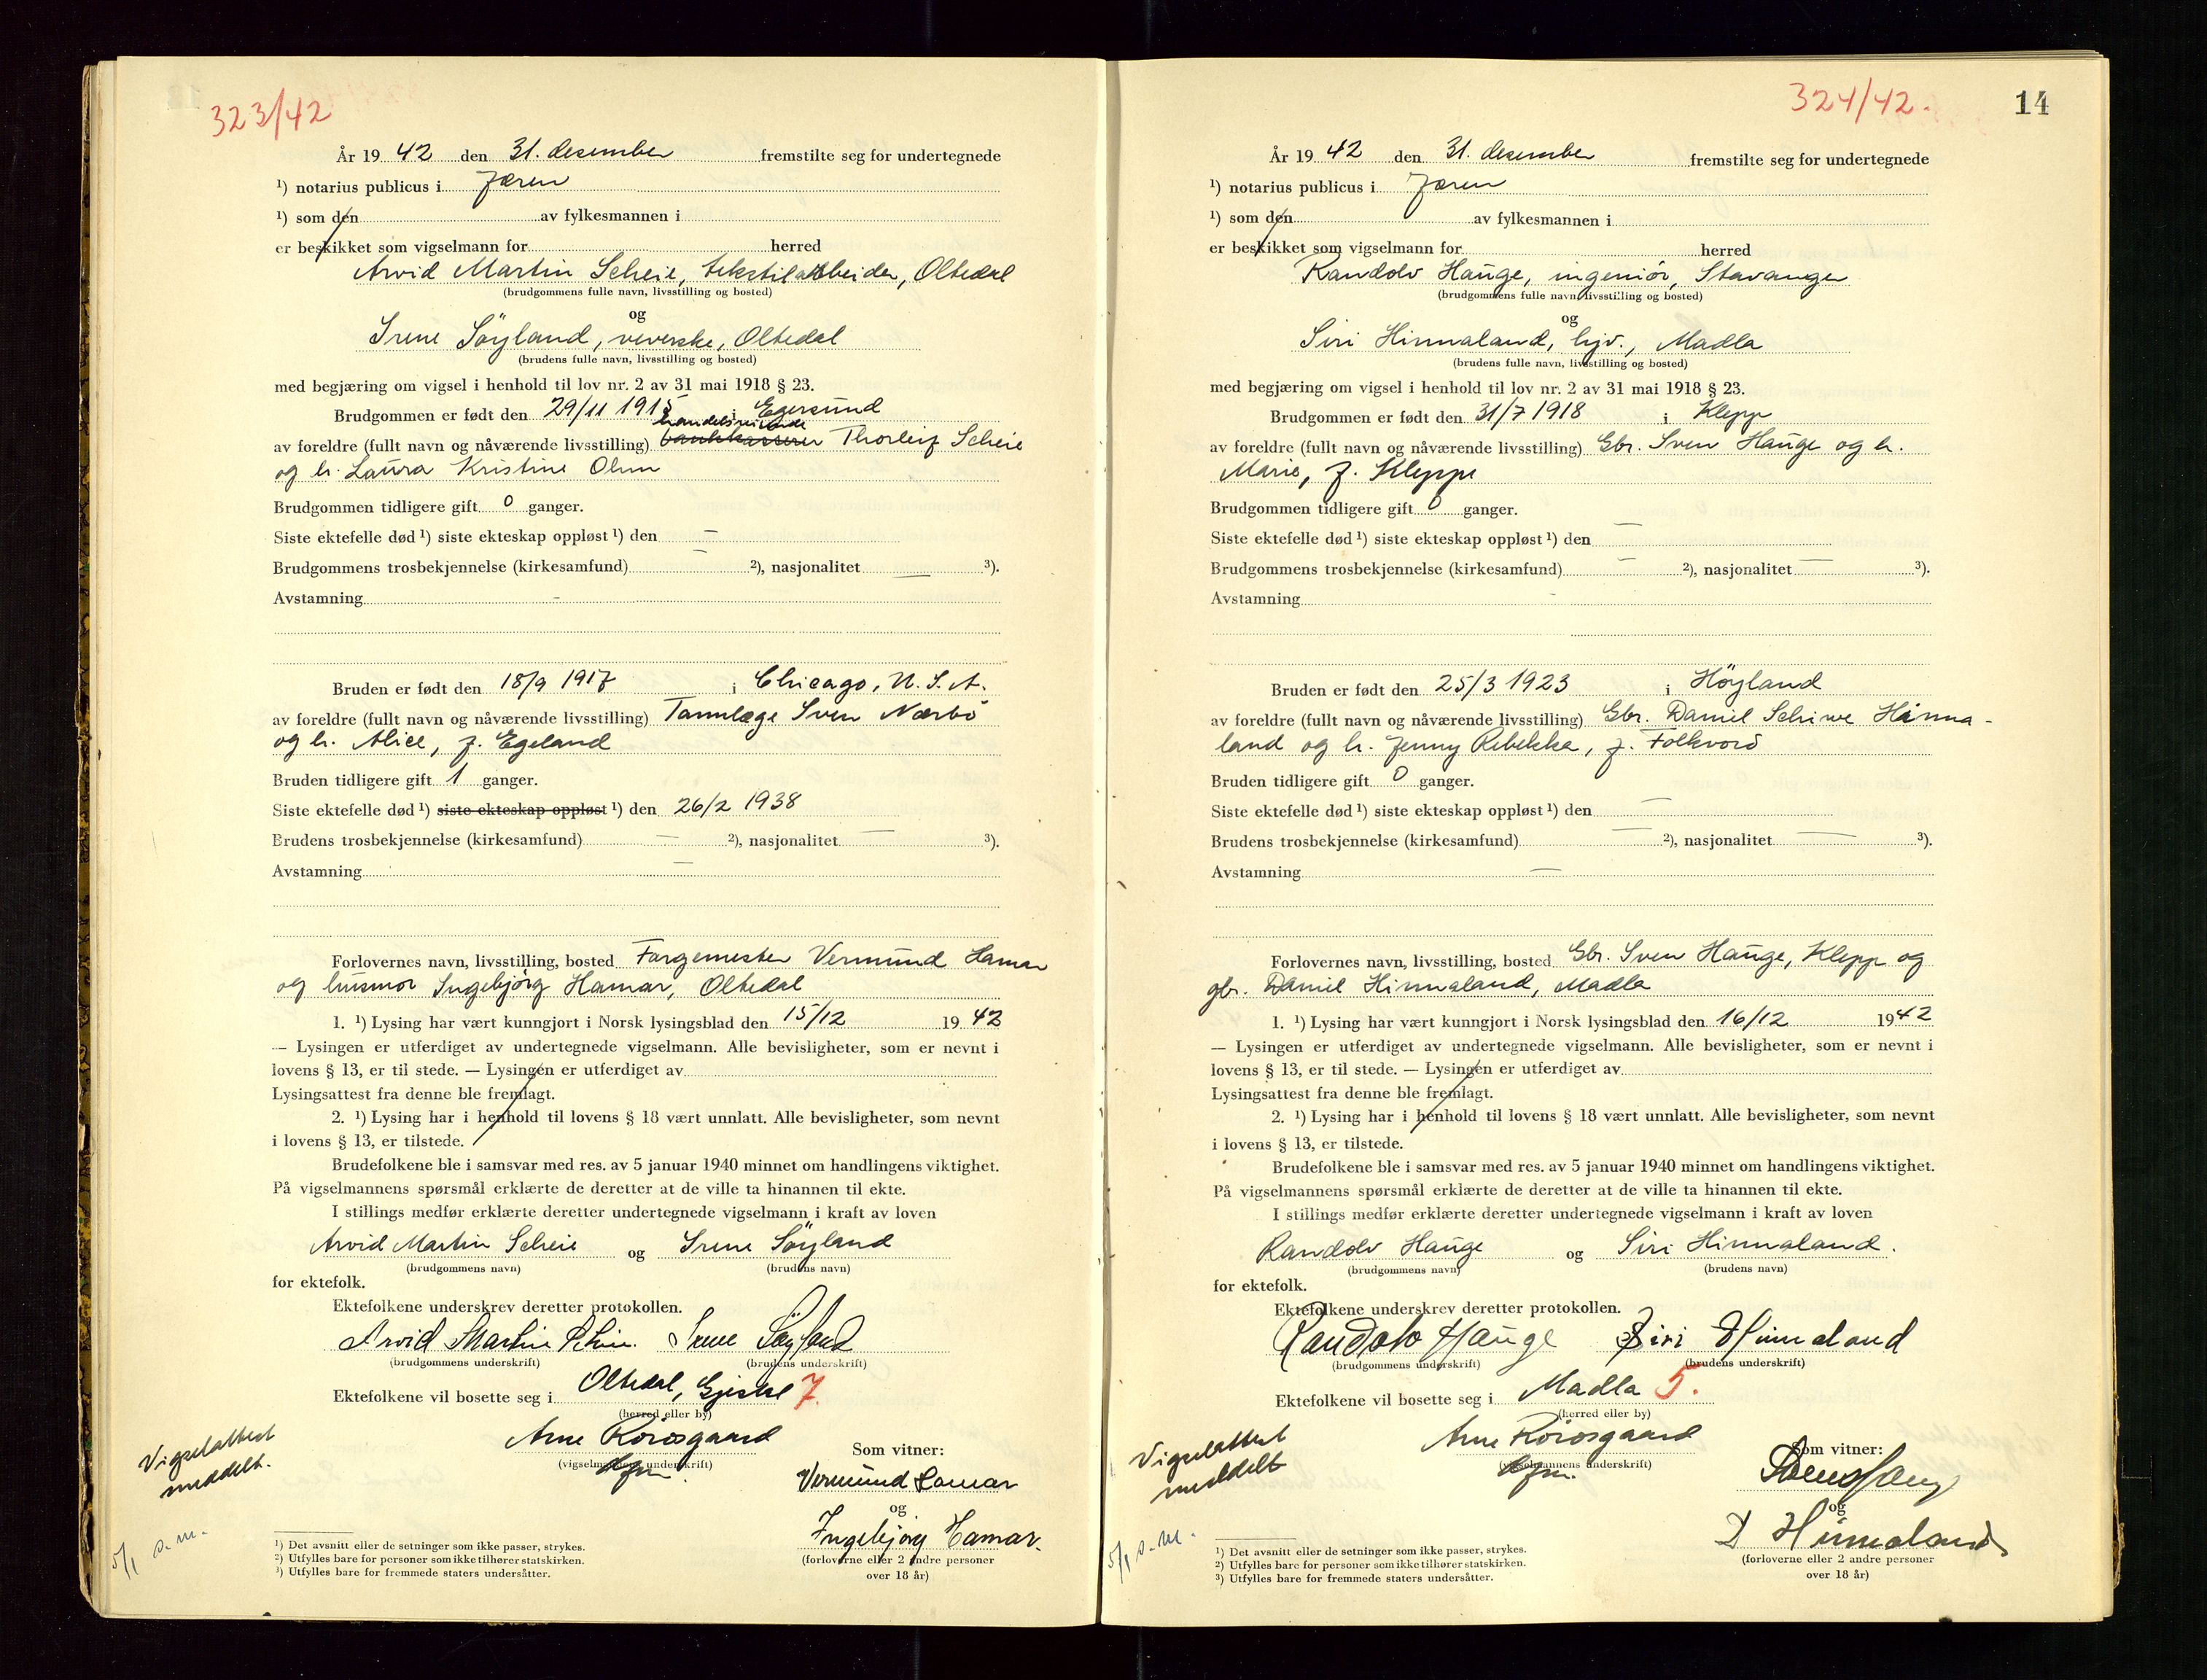 323/42
År 19 42 den 31. desember fremstilte seg for undertegnede
¹) notarius publicus i Jæren
¹) som den av fylkesmannen i
er beskikket som vigselmann for herred
Arvid Martin Scheie, tekstilarbeider, Oltedal
(brudgommens fulle navn, livsstilling og bosted)
og
Irene Söyland, veverske, Oltedal
(brudens fulle navn, livsstilling og bosted)
med begjæring om vigsel i henhold til lov nr. 2 av 31 mai 1918 § 23.
Brudgommen er født den 29/11 1915 i Egersund
handelsreisende
av foreldre (fullt navn og nåværende livsstilling) bankkasserer Thorleif Scheie
og h. Laura Kristine Olsen
Brudgommen tidligere gift 0 ganger.
Siste ektefelle død ¹) siste ekteskap oppløst ¹) den –
Brudgommens trosbekjennelse (kirkesamfund) – ²), nasjonalitet — ³).
Avstamning –
Bruden er født den 18/9 1917 i Chicago, U.S.A.
av foreldre (fullt navn og nåværende livsstilling) Tannlæge Sven Nærbö
og h. Alice, f. Egeland
Bruden tidligere gift 1 ganger.
Siste ektefelle død ¹) siste ekteskap oppløst ¹) den 26/2 1938
Brudens trosbekjennelse (kirkesamfund) — ²), nasjonalitet — ³).
Avstamning —
Forlovernes navn, livsstilling, bosted Fargemester Vermund Hamar
og husmor Ingebjörg Hamar, Oltedal
1. ¹) Lysing har vært kunngjort i Norsk lysingsblad den 15/12 19 42
— Lysingen er utferdiget av undertegnede vigselmann. Alle bevisligheter, som er nevnt i
lovens § 13, er til stede. — Lysingen er utferdiget av
Lysingsattest fra denne ble fremlagt.
2. ¹) Lysing har i henhold til lovens § 18 vært unnlatt. Alle bevisligheter, som nevnt
i lovens § 13, er tilstede.
Brudefolkene ble i samsvar med res. av 5 januar 1940 minnet om handlingens viktighet.
På vigselmannens spørsmål erklærte de deretter at de ville ta hinannen til ekte.
I stillings medfør erklærte deretter undertegnede vigselmann i kraft av loven
Arvid Martin Scheie og Irene Söyland
(brudgommens navn) (brudens navn)
for ektefolk.
Ektefolkene underskrev deretter protokollen.
Arvid Martin Scheie. Irene Söyland
(brudgommens underskrift) (brudens underskrift)
Ektefolkene vil bosette seg i Oltedal, Gjestal 7.
(herred eller by)
Arne Rörosgaard
(vigselmannens underskrift)
Som vitner:
Vermund Hamar
og
Ingebjörg Hamar.
(forloverne eller 2 andre personer
over 18 år)
Vigselattest
meddelt.
5/1 s.m.
¹) Det avsnitt eller de setninger som ikke passer, strykes.
²) Utfylles bare for personer som ikke tilhører statskirken.
³) Utfylles bare for fremmede staters undersåtter.
324/42.
14
År 19 42 den 31. desember fremstilte seg for undertegnede
¹) notarius publicus i Jæren
¹) som den av fylkesmannen i
er beskikket som vigselmann for herred
Randolv Hauge, ingeniör, Stavanger
(brudgommens fulle navn, livsstilling og bosted)
og
Siri Hinnaland, hjv., Madla
(brudens fulle navn, livsstilling og bosted)
med begjæring om vigsel i henhold til lov nr. 2 av 31 mai 1918 § 23.
Brudgommen er født den 31/7 1918 i Klepp
av foreldre (fullt navn og nåværende livsstilling) Gbr. Sven Hauge og h.
Marie, f. Kleppe
Brudgommen tidligere gift 0 ganger.
Siste ektefelle død ¹) siste ekteskap oppløst ¹) den —
Brudgommens trosbekjennelse (kirkesamfund) — ²), nasjonalitet — ³).
Avstamning -
Bruden er født den 25/3 1923 i Höyland
av foreldre (fullt navn og nåværende livsstilling) Gbr. Daniel Hinna-
land og h. Jenny Rebekka, f. Folkvord
Bruden tidligere gift 0 ganger.
Siste ektefelle død ¹) siste ekteskap oppløst ¹) den —
Brudens trosbekjennelse (kirkesamfund) — ²), nasjonalitet — ³).
Avstamning —
Forlovernes navn, livsstilling, bosted Gbr. Sven Hauge, Klepp og
gbr. Daniel Hinnaland, Madla
1. ¹) Lysing har vært kunngjort i Norsk lysingsblad den 16/12 19 42
— Lysingen er utferdiget av undertegnede vigselmann. Alle bevisligheter, som er nevnt i
lovens § 13, er til stede. — Lysingen er utferdiget av
Lysingsattest fra denne ble fremlagt.
2. ¹) Lysing har i henhold til lovens § 18 vært unnlatt. Alle bevisligheter, som nevnt
i lovens § 13, er tilstede.
Brudefolkene ble i samsvar med res. av 5 januar 1940 minnet om handlingens viktighet.
På vigselmannens spørsmål erklærte de deretter at de ville ta hinannen til ekte.
I stillings medfør erklærte deretter undertegnede vigselmann i kraft av loven
Randolv Hauge og Siri Hinnaland.
(brudgommens navn) (brudens navn)
for ektefolk.
Ektefolkene underskrev deretter protokollen.
Randolv Hauge Siri Hinnaland
(brudgommens underskrift) (brudens underskrift)
Ektefolkene vil bosette seg i Madla 5.
(herred eller by)
Arne Rörosgaard
(vigselmannens underskrift)
Som vitner:
Sven Hauge
og
D Hinnaland
(forloverne eller 2 andre personer
over 18 år)
Vigselattest
meddelt
5/1 s.m.
¹) Det avsnitt eller de setninger som ikke passer, strykes.
²) Utfylles bare for personer som ikke tilhører statskirken.
³) Utfylles bare for fremmede staters undersåtter.